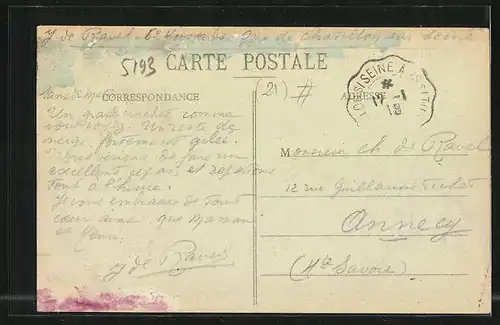 J de Ravel 6e Hussards Gare de Chatillon sur Seine
5193
CARTE POSTALE
(21) #
CORRESPONDANCE
ADRESSE
17-1
18
Un grand rocher comme
vous voyez. Un reste de
neige, fortement gelée.
de faire un
excellent et repartons
tout à l'heure.
Je vous embrasse de tout
cœur ainsi que maman
et
J de Ravel
Monsieur Ch de Ravel
12 rue Guillaume Fichet
Annecy
(Hte Savoie)